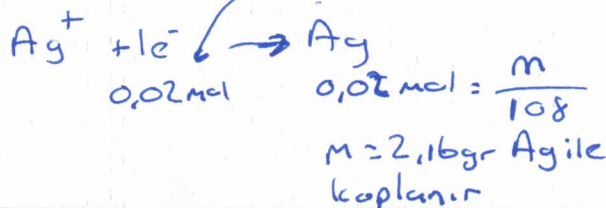 Ag⁺ +1e⁻ → Ag
0,02 mol 0,02 mol = m/108
m = 2,16gr Ag ile
kaplanır